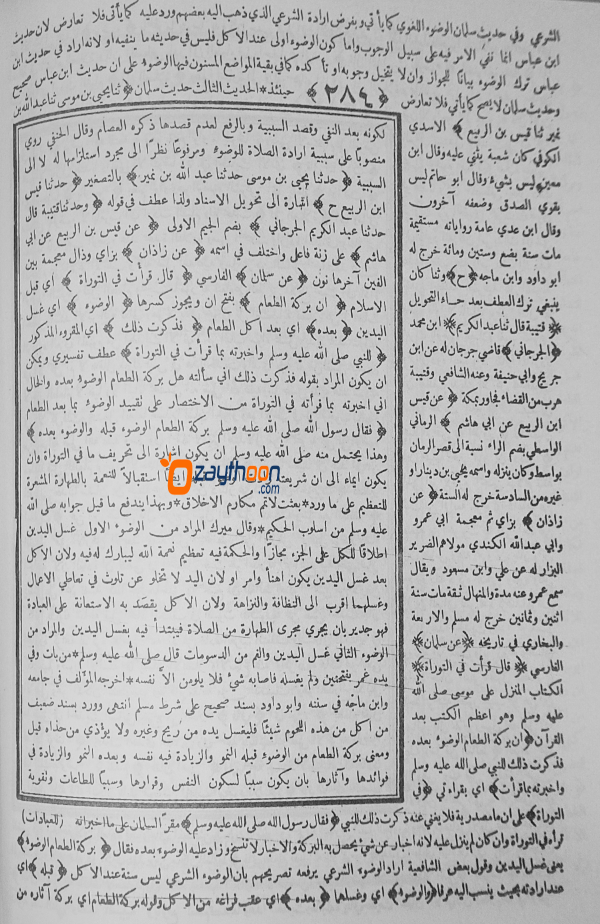 الشرعي وفي حديث سلمان الوضوء اللغوي كما يأتي وبفرض ارادة الشرعي الذي ذهب اليه بعضهم ورد عليه كما يأتي فلا تعارض لان حديث
ابن عباس انما نفي الامر فيه على سبيل الوجوب واما كون الوضوء اولى عند الاكل فليس في حديثه ما ينفيه او لانه اراد في حديث ابن
عباس ترك الوضوء بيانا للجواز وان لا يتخيل وجوبه او تأكده كما في بقية المواضع المسنون فيها الوضوء على ان حديث ابن عباس صحيح
وحديث سلمان لا يصح كما يأتي فلا تعارض ﴿ ٢٨٤ ﴾ حينئذ * الحديث الثالث حديث سلمان ﴿ ثنا يحيى بن موسى ثنا عبد الله بن
نمير ثنا قيس بن الربيع ﴾ الاسدي
الكوفي كان شعبة يثني عليه وقال ابن
معين ليس بشيء وقال ابو حاتم ليس
بقوي الصدق وضعفه آخرون
وقال ابن عدي عامة رواياته مستقيمة
مات سنة بضع وستين ومائة خرج له
ابو داود وابن ماجه ﴿ح﴾ وثنا كان
ينبغي ترك العطف بعد حاء التحويل
﴿ قتيبة قال ثنا عبد الكريم ﴾ ابن محمد
﴿ الجرجاني ﴾ قاضي جرجان له عن ابن
جريج وابي حنيفة وعنه الشافعي وقتيبة
هرب من القضاء فجاور بمكة ﴿ عن قيس
ابن الربيع عن ابي هاشم ﴾ الرماني
الواسطي بضم الراء نسبة الى قصر الرمان
بواسط وكان ينزله واسمه يحيى بن دينار او
غيره من السادسة خرج له الستة ﴿ عن
زاذان ﴾ بزاي ثم معجمة ابي عمرو
وابي عبد الله الكندي مولاهم الضرير
البزار له عن علي وابن مسعود ويقال
سمع عمر وعنه مدة والمنهال ثقة مات سنة
اثنين وثمانين خرج له مسلم والاربعة
والبخاري في تاريخه ﴿ عن سلمان ﴾
الفارسي ﴿ قال قرأت في التوراة ﴾
الكتاب المنزل على موسى صلى الله
عليه وسلم وهو اعظم الكتب بعد
القرآن ﴿ ان بركة الطعام الوضوء بعده
فذكرت ذلك للنبي صلى الله عليه وسلم
واخبرته بما قرأت ﴾ اي بقراءتي ﴿ في
لكونه بعد النفي وقصد السببية وبالرفع لعدم قصدها ذكره العصام وقال الحنفي روي
منصوبا على سببية ارادة الصلاة للوضوء ومرفوعا نظرا الى مجرد استلزامها له لا الى
السببية ﴿ حدثنا يحيى بن موسى حدثنا عبد الله بن نمير ﴾ بالتصغير ﴿ حدثنا قيس
ابن الربيع ح ﴾ اشارة الى تحويل الاسناد ولذا عطف في قوله ﴿ وحدثنا قتيبة قال
حدثنا عبد الكريم الجرجاني ﴾ بضم الجيم الاولى ﴿ عن قيس بن الربيع عن ابي
هاشم ﴾ على زنة فاعل واختلف في اسمه ﴿ عن زاذان ﴾ بزاي وذال معجمة بين
الفين آخرها نون ﴿ عن سلمان ﴾ الفارسي ﴿ قال قرأت في التوراة ﴾ اي قبل
الاسلام ﴿ ان بركة الطعام ﴾ بفتح ان ويجوز كسرها ﴿ الوضوء ﴾ اي غسل
اليدين ﴿ بعده ﴾ اي بعد اكل الطعام ﴿ فذكرت ذلك ﴾ اي المقروء المذكور
﴿ للنبي صلى الله عليه وسلم واخبرته بما قرأت في التوراة ﴾ عطف تفسيري ويمكن
ان يكون المراد بقوله فذكرت ذلك اني سألته هل بركة الطعام الوضوء بعده والحال
اني اخبرته بما قرأته في التوراة من الاختصار على تقييد الوضوء بما بعد الطعام
﴿ فقال رسول الله صلى الله عليه وسلم بركة الطعام الوضوء قبله والوضوء بعده ﴾
وهذا يحتمل منه صلى الله عليه وسلم ان يكون اشارة الى تحريف ما في التوراة وان
يكون ايماء الى ان شريعته ايضا استقبالا للنعمة بالطهارة المشعرة
للتعظيم على ما ورد * بعثت لاتمم مكارم الاخلاق * وبهذا يندفع ما قيل جوابه صلى الله
عليه وسلم من اسلوب الحكيم * وقال ميرك المراد من الوضوء الاول غسل اليدين
اطلاقا للكل على الجزء مجازا والحكمة فيه تعظيم نعمة الله ليبارك له فيه ولان الاكل
بعد غسل اليدين يكون اهنأ وامر او لان اليد لا تخلو عن تلوث في تعاطي الاعمال
وغسلهما اقرب الى النظافة والنزاهة ولان الاكل يقصد به الاستعانة على العبادة
فهو جدير بان يجري مجرى الطهارة من الصلاة فيبتدأ فيه بغسل اليدين والمراد من
الوضوء الثاني غسل اليدين والفم من الدسومات قال صلى الله عليه وسلم * من بات وفي
يده غمر بفتحتين ولم يغسله فاصابه شيء فلا يلومن الا نفسه * اخرجه المؤلف في جامعه
وابن ماجه في سننه وابو داود بسند صحيح على شرط مسلم انتهى وورد بسند ضعيف
من اكل من هذه اللحوم شيئا فليغسل يده من ريح وغيره ولا يؤذي من حذاه قيل
ومعنى بركة الطعام من الوضوء قبله النمو والزيادة فيه نفسه وبعده النمو والزيادة في
فوائدها وآثارها بان يكون سببا لسكون النفس وقرارها وسببا للطاعات وتقوية
(للعبادات)
التوراة ﴾ على ان ما مصدرية فلا يغني عنه ذكرت ذلك للنبي ﴿ فقال رسول الله صلى الله عليه وسلم ﴾ مقرا لسلمان على ما اخبر انه
قرأه في التوراة وان كان لم ينزل عليه لانه اخبار عن شيء يحصل به البركة والاخبار لا تنسخ وزاد عليه الوضوء بعده فقال ﴿ بركة الطعام الوضوء ﴾
يعني غسل اليدين وقول بعض الشافعية اراد الوضوء الشرعي يرفعه تصريحهم بان الوضوء الشرعي ليس سنة عند الاكل ﴿ قبله ﴾ اي
عند ارادته بحيث ينسب اليه عرفا ﴿ والوضوء ﴾ اي وغسلها ﴿ بعده ﴾ اي عقب فراغه من الاكل وقوله بركة الطعام اي بركة آثاره من
zaythoon
.com